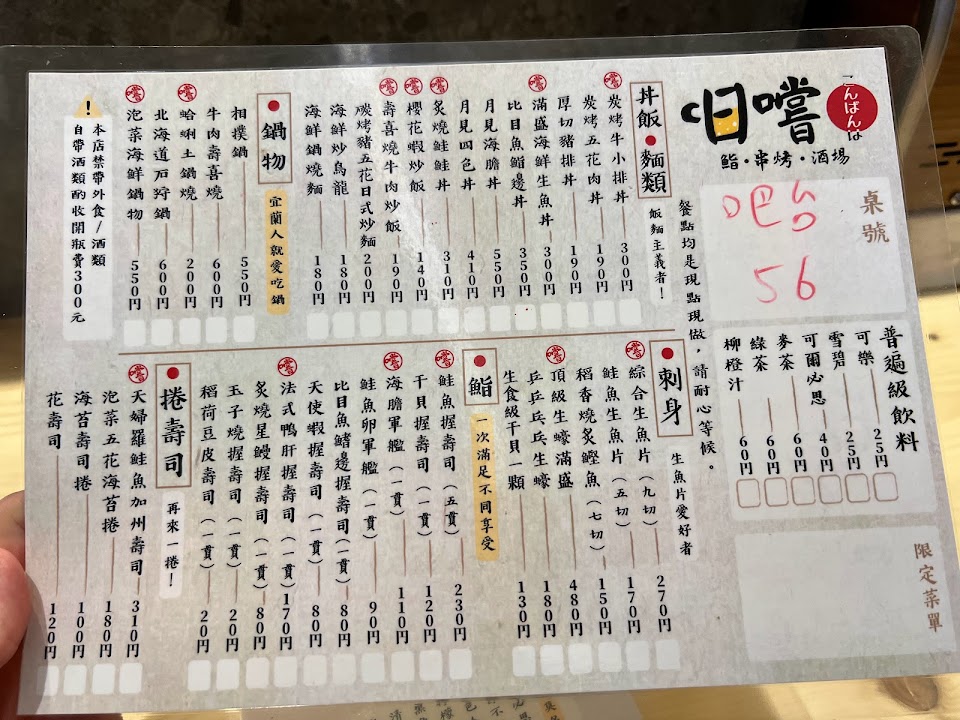 こんばんは
日嚐
鮨・串烤・酒場
桌號
吧台
56
普遍級飲料
可樂 25円
雪碧 25円
可爾必思 40円
麥茶 60円
綠茶 60円
柳橙汁 60円
限定菜單
餐點均是現點現做，請耐心等候。
丼飯・麵類
飯麵主義者！
嚐 炭烤牛小排丼 300円
炭烤五花肉丼 190円
厚切豬排丼 190円
嚐 滿盛海鮮生魚丼 300円
比目魚鰭邊丼 350円
月見海膽丼 550円
月見四色丼 410円
嚐 炙燒鮭鮭丼 310円
嚐 櫻花蝦炒飯 140円
嚐 壽喜燒牛肉炒飯 190円
碳烤豬五花日式炒麵 200円
海鮮炒烏龍 180円
海鮮鍋燒麵 180円
鍋物
宜蘭人就愛吃鍋
相撲鍋 550円
牛肉壽喜燒 600円
嚐 蛤蜊土鍋燒 200円
北海道石狩鍋 600円
嚐 泡菜海鮮鍋物 550円
!
本店禁帶外食/酒類
自帶酒類酌收開瓶費300元
刺身
生魚片愛好者
嚐 綜合生魚片（九切） 270円
鮭魚生魚片（五切） 170円
稻香燒炙鰹魚（七切） 150円
嚐 頂級生蠔滿盛 480円
乒乒乓乓生蠔 180円
生食級干貝一顆 130円
鮨
一次滿足不同享受
嚐 鮭魚握壽司（五貫） 230円
干貝握壽司（一貫） 120円
嚐 海膽軍艦（一貫） 110円
鮭魚卵軍艦（一貫） 90円
比目魚鰭邊握壽司（一貫） 80円
天使蝦握壽司（一貫） 80円
嚐 法式鴨肝握壽司（一貫） 170円
炙燒星鰻握壽司（一貫） 80円
玉子燒握壽司（一貫） 20円
稻荷豆皮壽司（一貫） 20円
捲壽司
再來一捲！
嚐 天婦羅鮭魚加州壽司 310円
泡菜五花海苔捲 180円
海苔壽司捲 100円
花壽司 120円